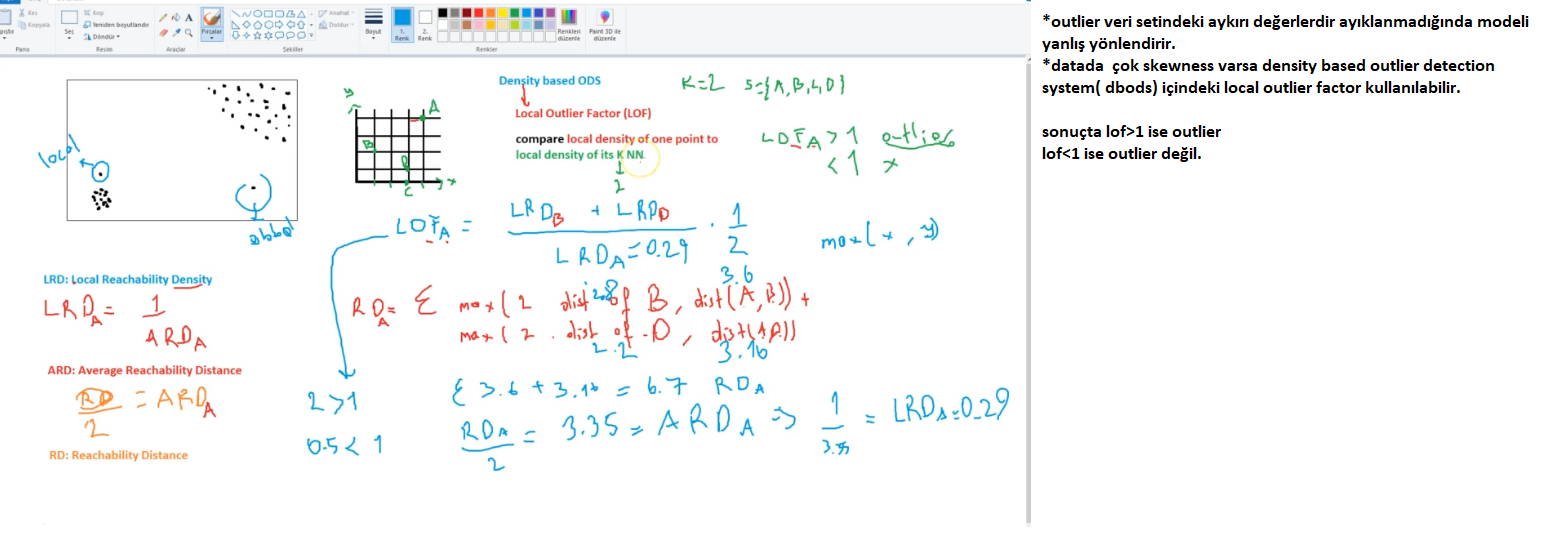 Kes
Kopyala
Pano
Seç
Kırp
Yeniden boyutlandır
Döndür
Resim
A
Araçlar
Fırçalar
Şekiller
Anahat
Doldur
Boyut
1.
Renk
2.
Renk
Renkler
Renkleri
düzenle
Paint 3D ile
düzenle
local
global
y
A
B
D
C
x
Density based ODS
Local Outlier Factor (LOF)
compare local density of one point to
local density of its K NN.
2
K=2
LOF A > 1 outlier
< 1 x
LOF A =
LRD B + LRD D
LRD A = 0.29
. 1
2
max(x, y)
LRD: Local Reachability Density
LRD A = 1
ARD A
ARD: Average Reachability Distance
RD = ARD A
2
RD: Reachability Distance
2 > 1
0.5 < 1
3.6
2.8
RD A = Σ max( 2 dist of B, dist(A,B)) +
max( 2 . dist of D, dist(A,D))
2.2
3.16
Σ 3.6 + 3.16 = 6.7 RD A
RD A = 3.35 = ARD A ⇒ 1 = LRD A = 0.29
2
*outlier veri setindeki aykırı değerlerdir ayıklanmadığında modeli
yanlış yönlendirir.
*datada çok skewness varsa density based outlier detection
system( dbods) içindeki local outlier factor kullanılabilir.
sonuçta lof>1 ise outlier
lof<1 ise outlier değil.